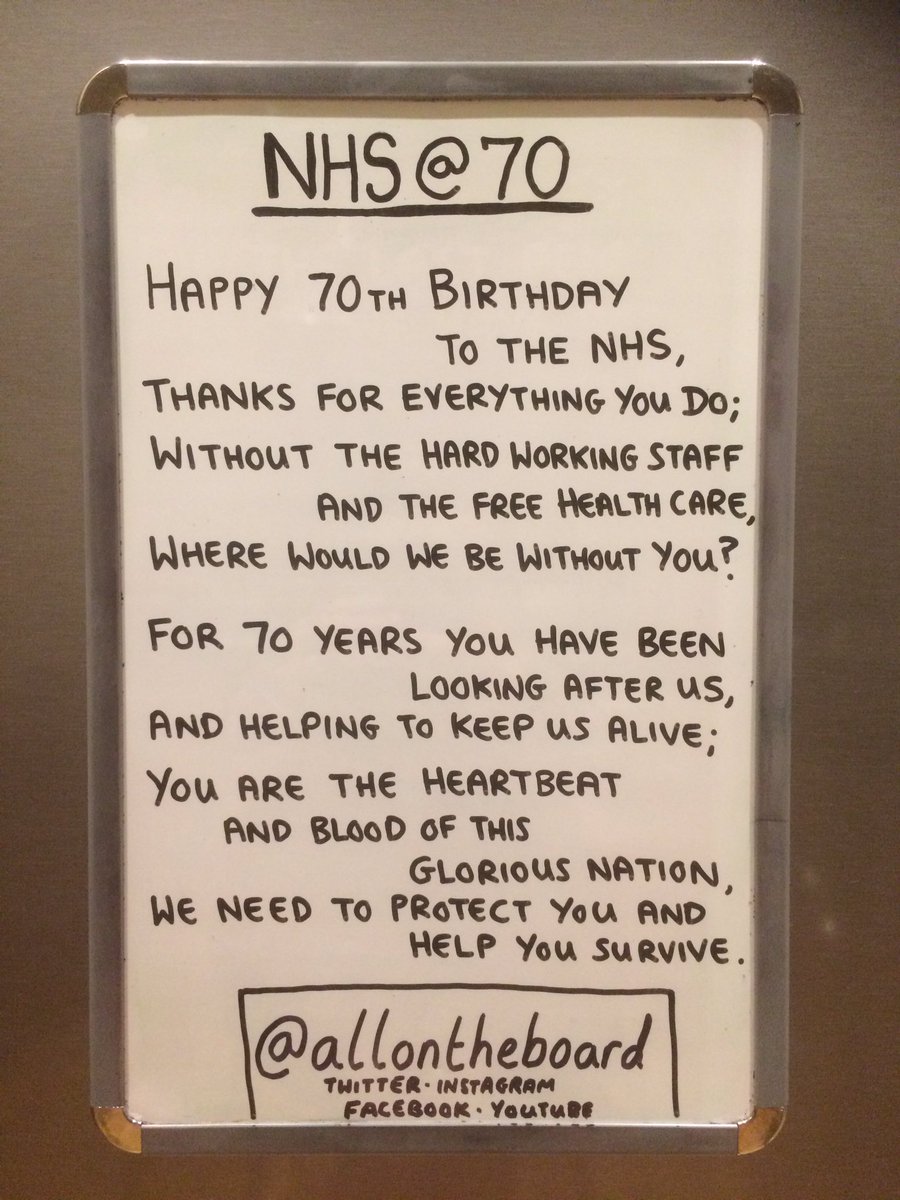 NHS@70
HAPPY 70TH BIRTHDAY
TO THE NHS,
THANKS FOR EVERYTHING YOU DO;
WITHOUT THE HARD WORKING STAFF
AND THE FREE HEALTH CARE,
WHERE WOULD WE BE WITHOUT YOU?
FOR 70 YEARS YOU HAVE BEEN
LOOKING AFTER US,
AND HELPING TO KEEP US ALIVE;
YOU ARE THE HEARTBEAT
AND BLOOD OF THIS
GLORIOUS NATION,
WE NEED TO PROTECT YOU AND
HELP YOU SURVIVE.
@allontheboard
TWITTER · INSTAGRAM
FACEBOOK · YOUTUBE